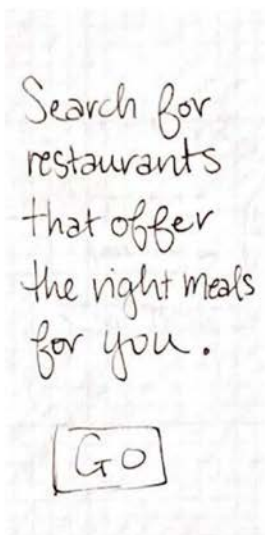 Search for
restaurants
that offer
the right meals
for you.
Go